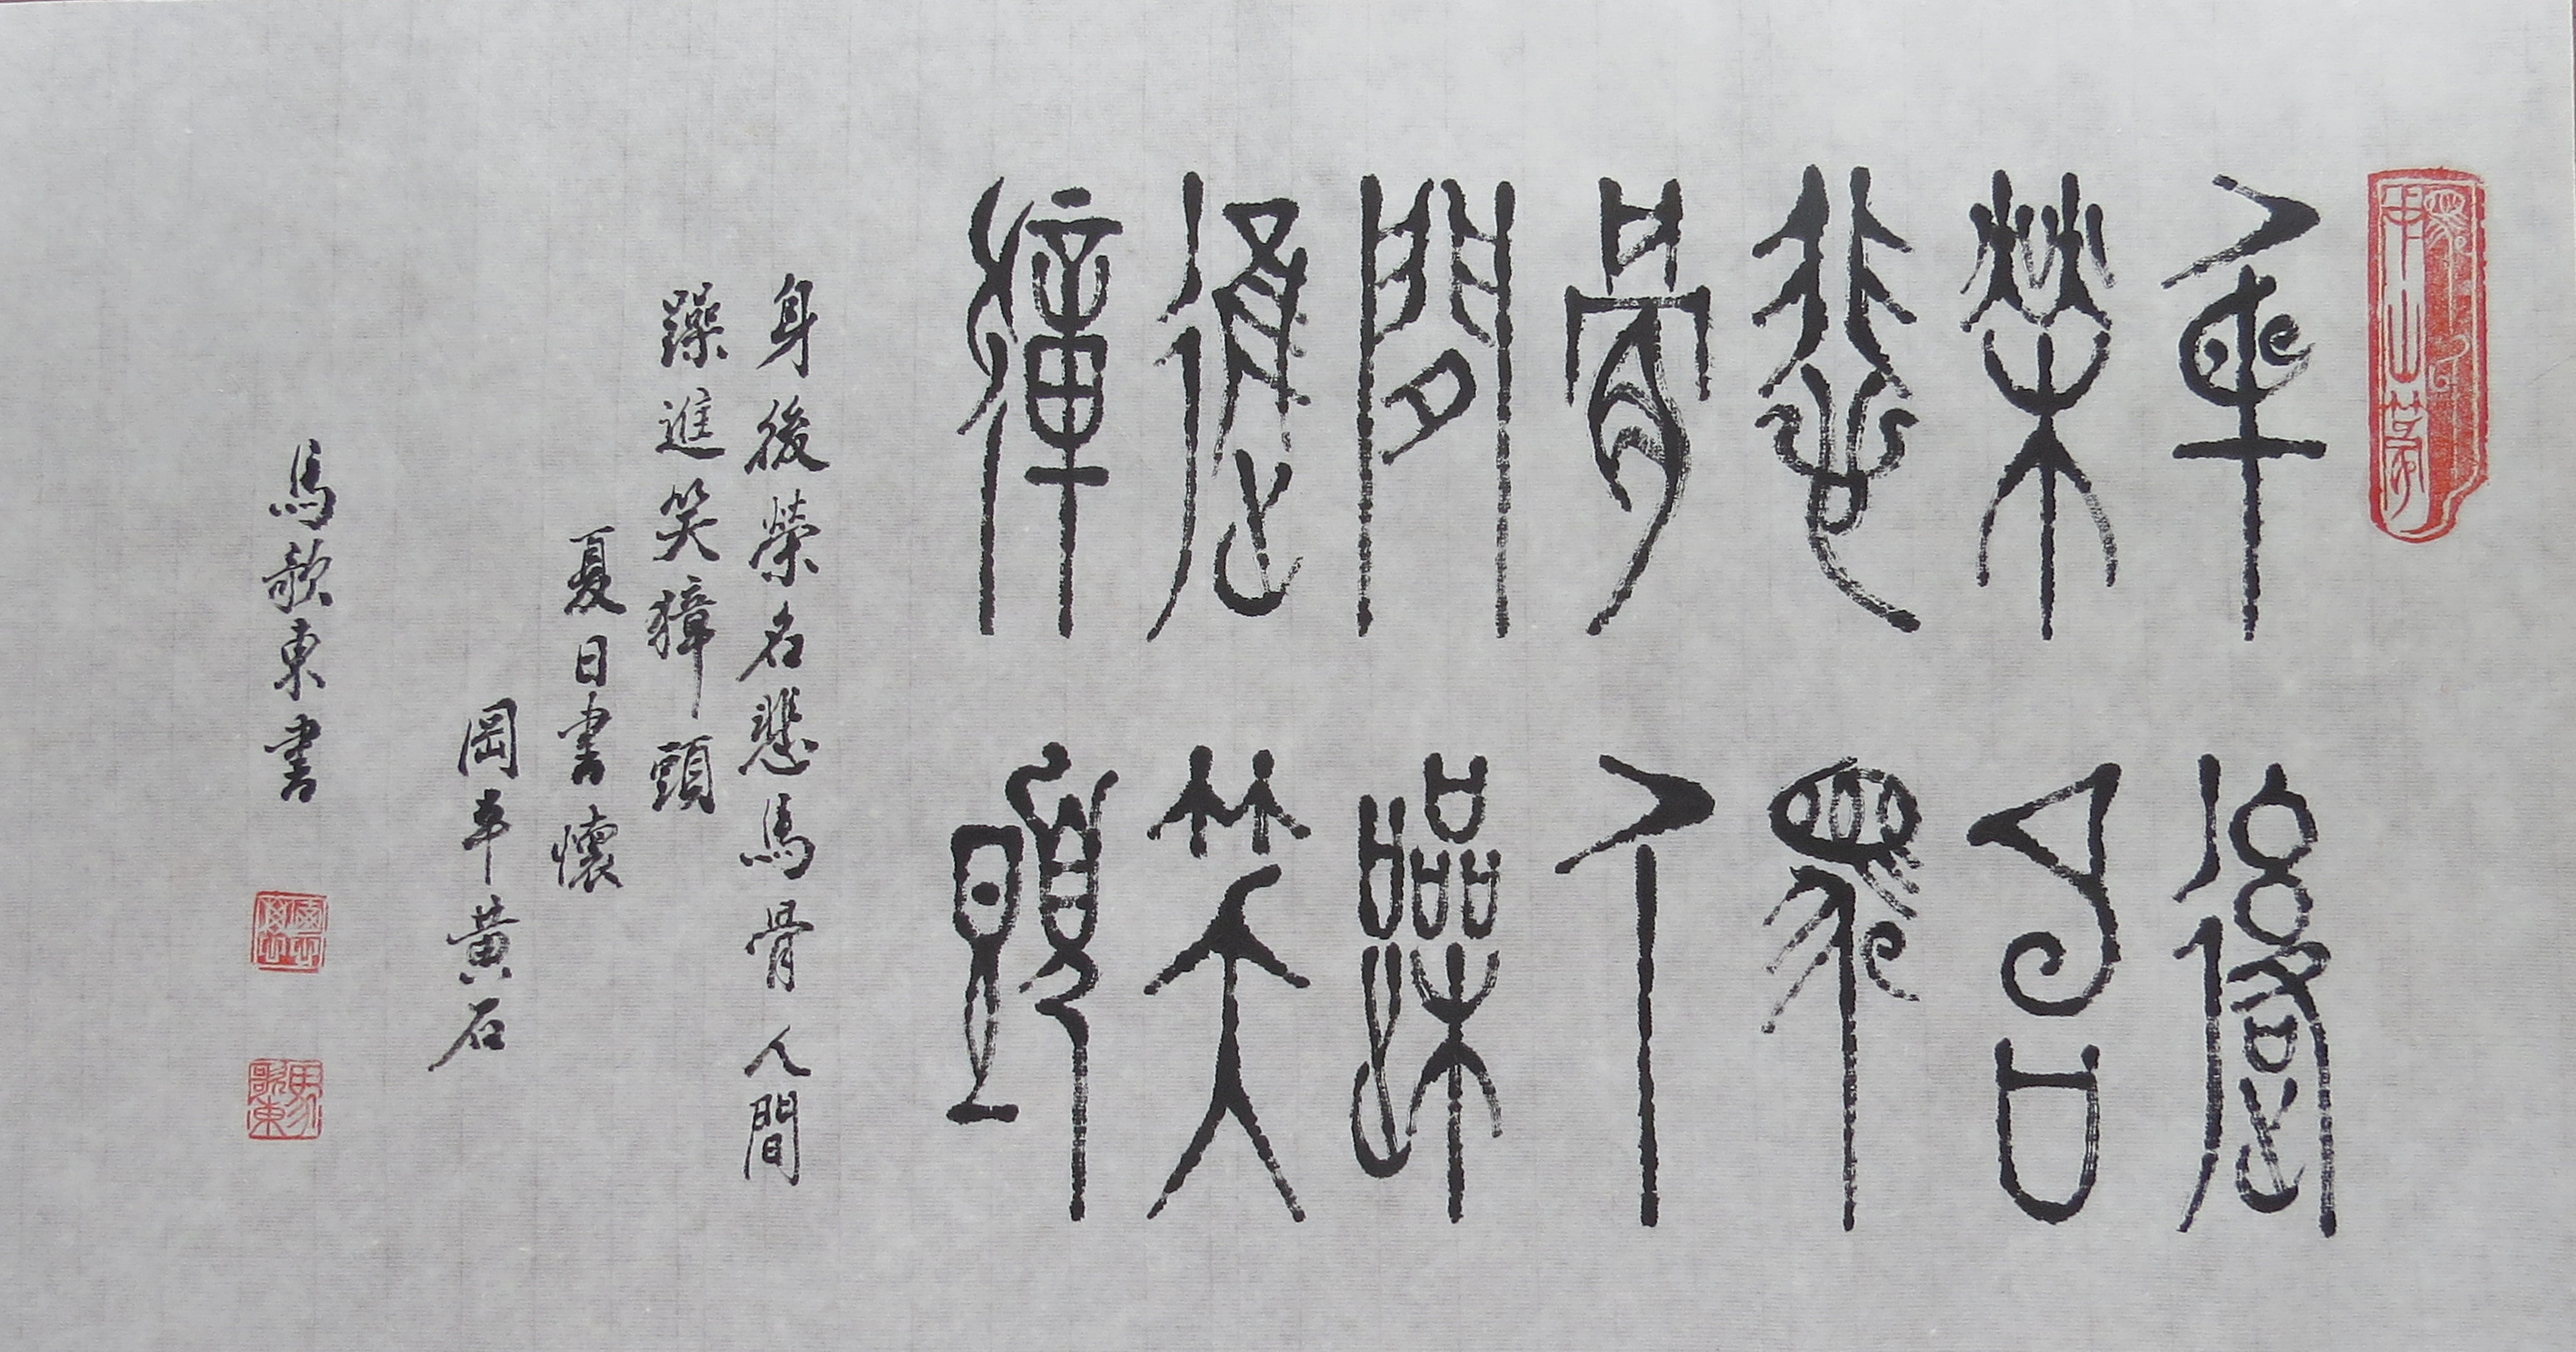 身後
榮名
悲馬
骨人
間躁
進笑
獐頭
身後榮名悲馬骨人間
躁進笑獐頭
夏日書懷
岡本黃石
馬歌東書